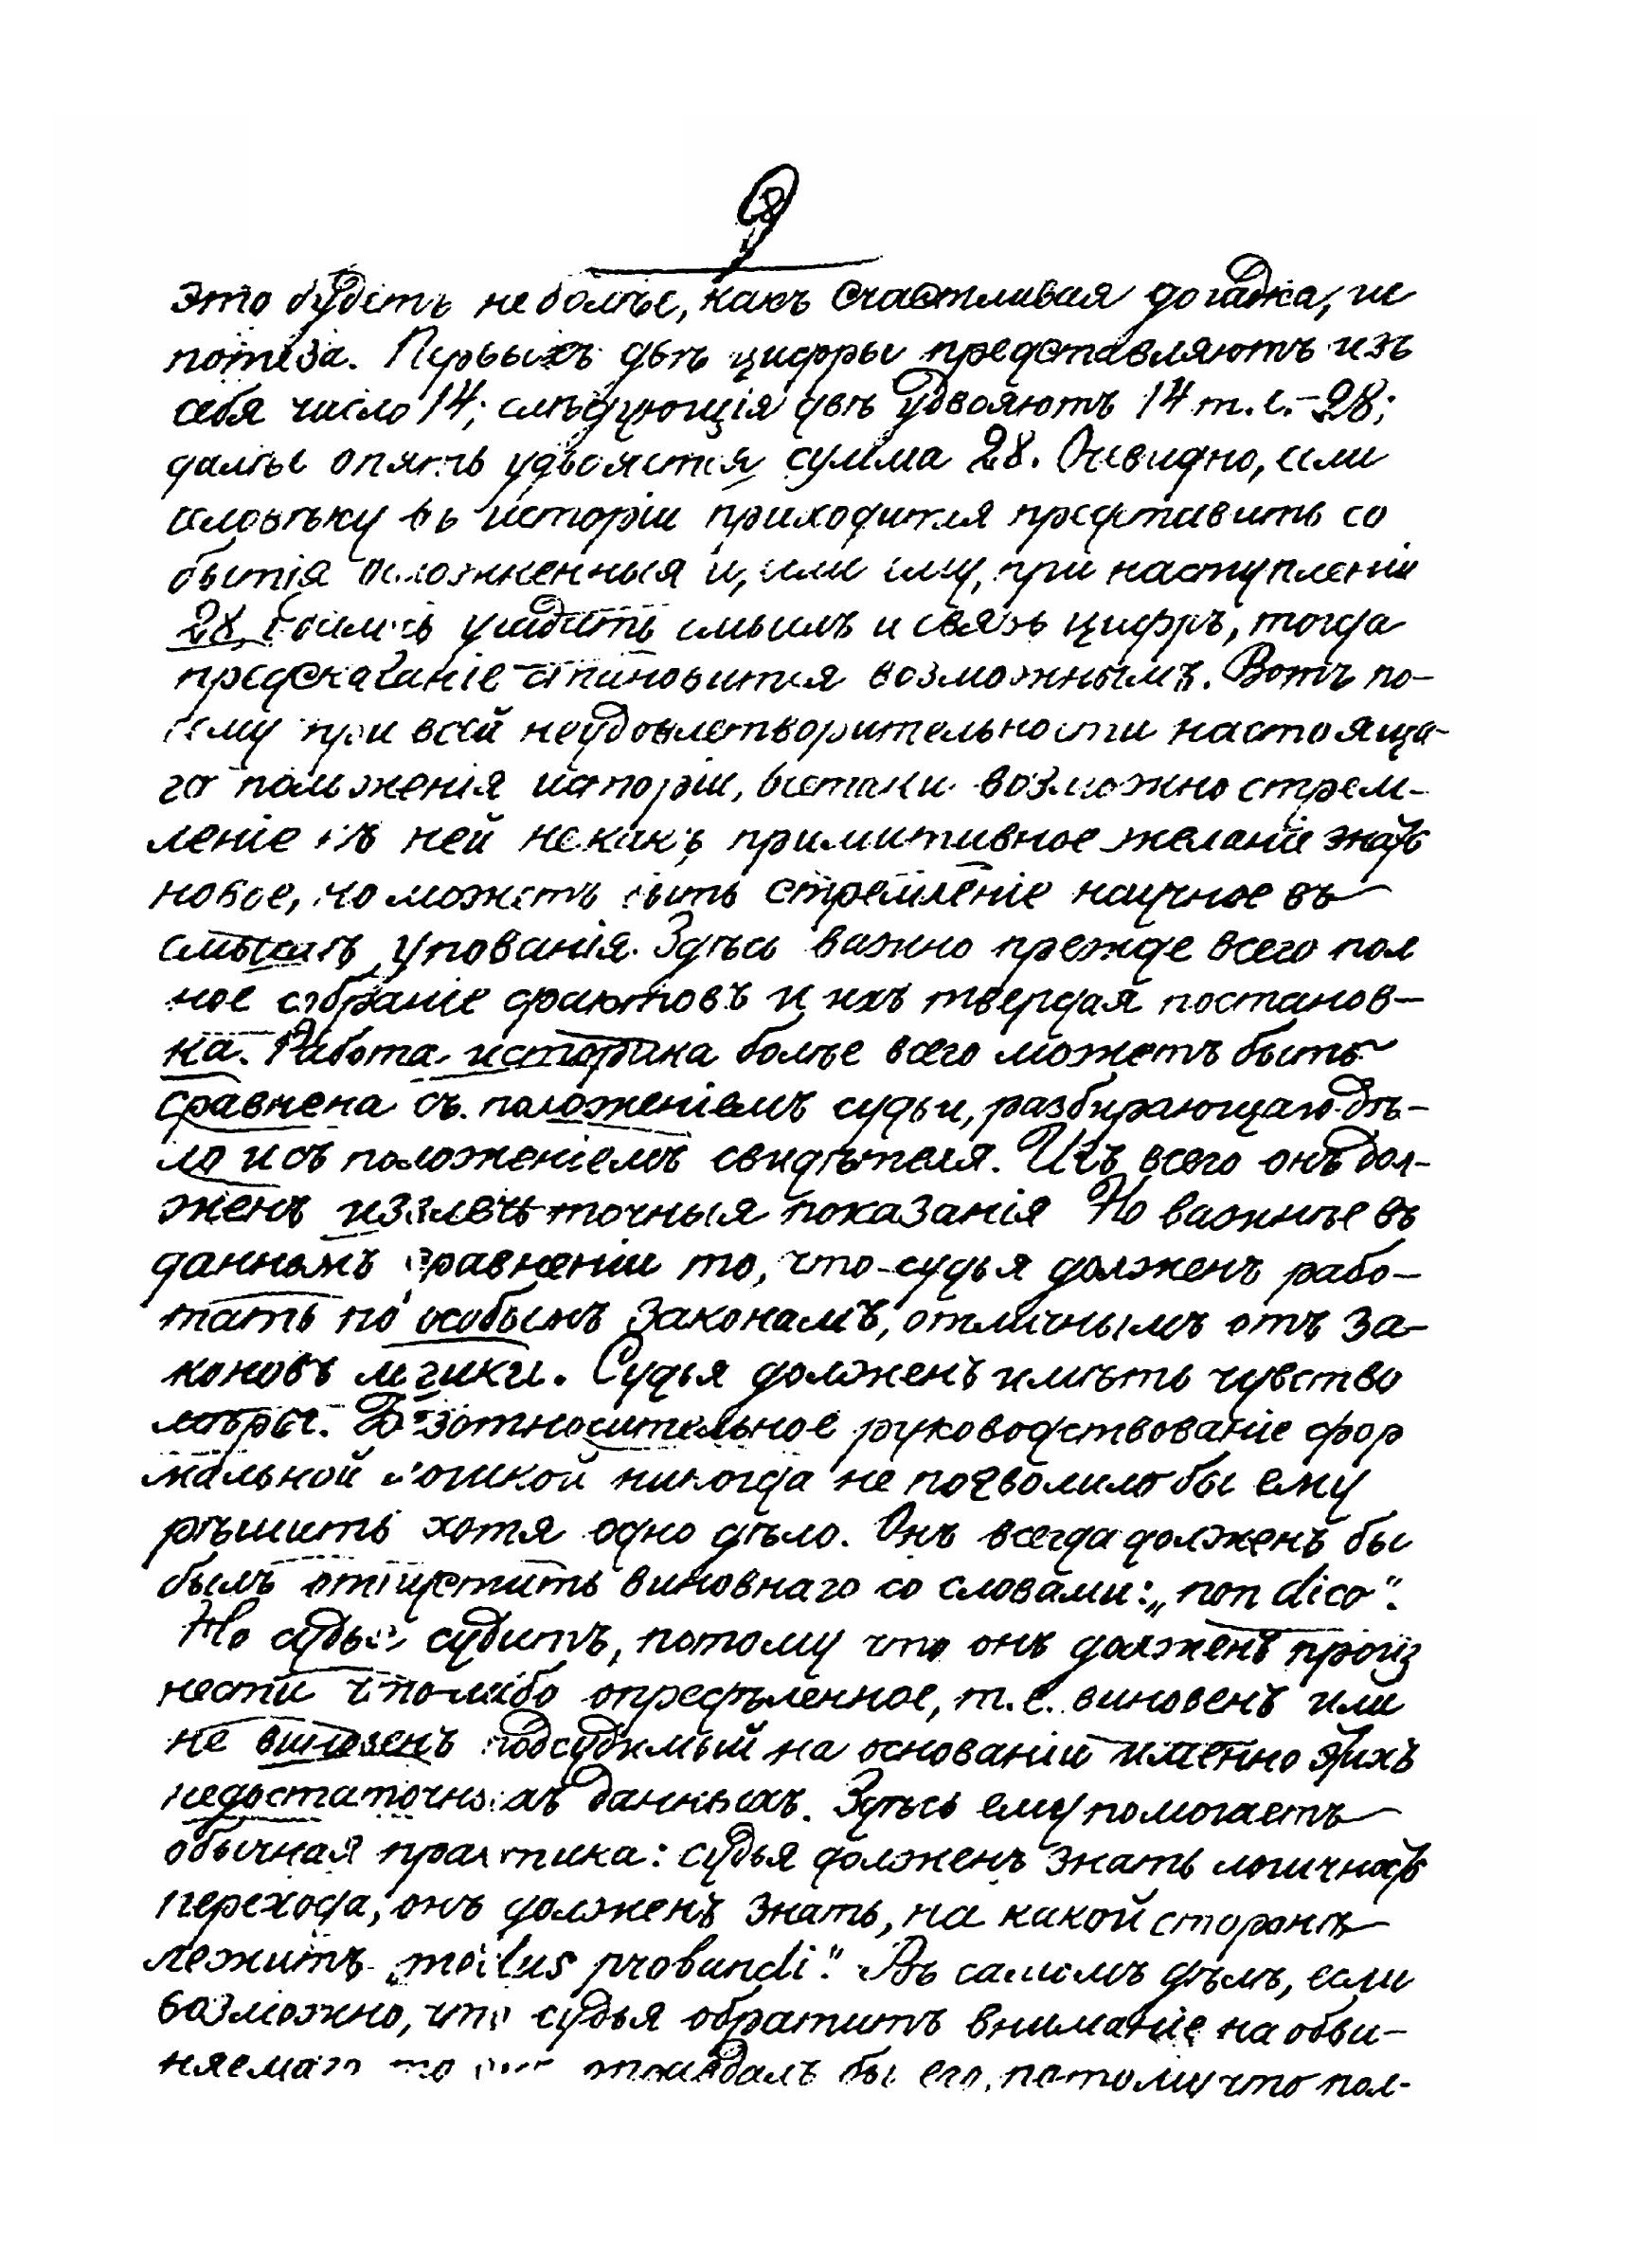 9
это будетъ не болѣе, какъ счастливая догадка, ги
потеза. Первыхъ двѣ цифры представляютъ изъ
себя число 14; слѣдующія двѣ удвояютъ 14 т.е. - 28;
далѣе опять удвояется сумма 28. Очевидно, если
человѣку въ исторіи приходится представить со
бытія осложненныя и, или ему, при наступленіи
28, удалось угадать смыслъ и связь цифръ, тогда
предсказаніе становится возможнымъ. Вотъ по-
чему при всей неудовлетворительности настояща-
го положенія исторіи, всетаки возможно стрем-
леніе къ ней не какъ примитивное желаніе знать
новое, но можетъ быть стремленіе научное въ
смыслѣ упованія. Здѣсь важно прежде всего пол
ное собраніе фактовъ и ихъ твердая постанов-
ка. Работа историка болѣе всего можетъ быть
сравнена съ положеніемъ судьи, разбирающаго дѣ-
ло и съ положеніемъ свидѣтеля. Изъ всего онъ дол-
женъ извлечь точныя показанія Но важнѣе въ
данномъ сравненіи то, что судья долженъ рабо-
тать по особымъ законамъ, отличнымъ отъ за-
коновъ логики. Судья долженъ имѣть чувство
мѣры. Безотносительное руководствованіе фор
мальной логикой никогда не позволило бы ему
рѣшить хотя одно дѣло. Онъ всегда долженъ бы
былъ отпустить виновнаго со словами: „non dico“.
Но судья судитъ, потому что онъ долженъ произ
нести что либо опредѣленное, т.е. виновенъ или
не виновенъ подсудимый на основаніи именно этихъ
недостаточныхъ данныхъ. Здѣсь ему помогаетъ
обычная практика: судья долженъ знать логичность
перехода, онъ долженъ знать, на какой сторонѣ
лежитъ probandi“. Въ самомъ дѣлѣ, если
возможно, что судья обратитъ вниманіе на обви-
няемаго то бы его, потому что пол-